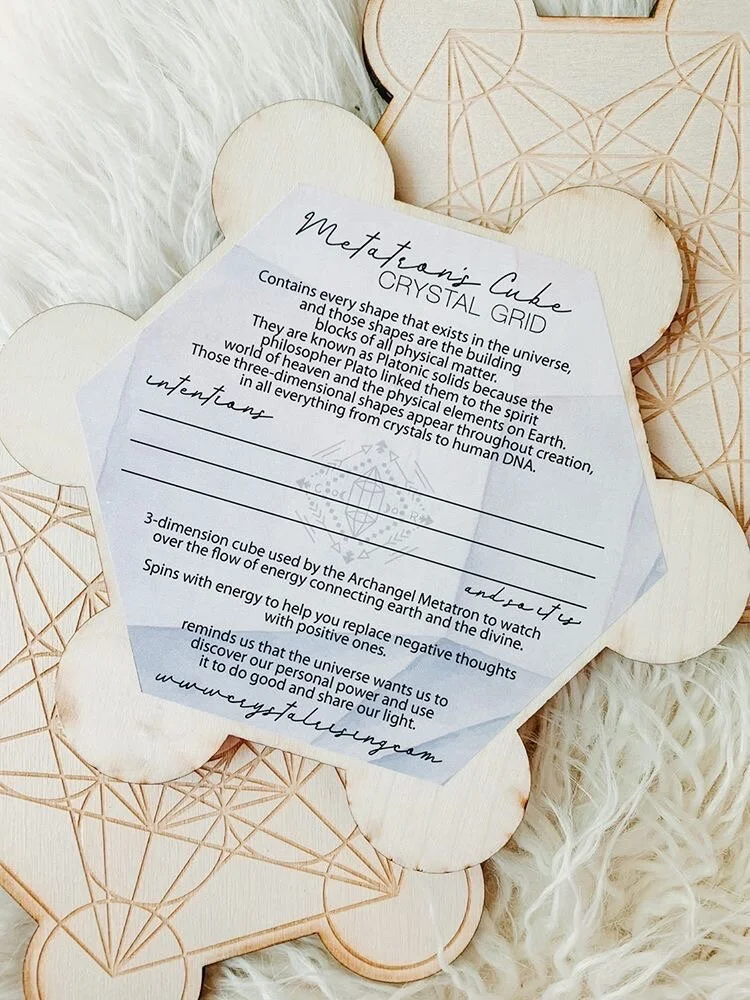 Metatron's Cube
CRYSTAL GRID
Contains every shape that exists in the universe,
and those shapes are the building
blocks of all physical matter.
They are known as Platonic solids because the
philosopher Plato linked them to the spirit
world of heaven and the physical elements on Earth.
Those three-dimensional shapes appear throughout creation,
in all everything from crystals to human DNA.
intentions
and so it is
3-dimension cube used by the Archangel Metatron to watch
over the flow of energy connecting earth and the divine.
Spins with energy to help you replace negative thoughts
with positive ones.
reminds us that the universe wants us to
discover our personal power and use
it to do good and share our light.
www.crystalrising.com